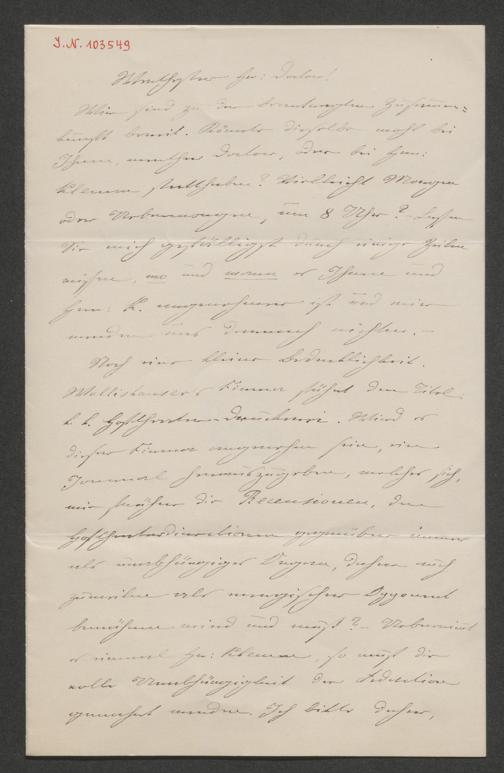 I.N. 103549
Wertester Hr: Doctor!
Wir sind zu der beantragten Zusammen=
kunft bereit. Könnte dieselbe wohl bei
Ihnen, werther Doctor, oder bei Hrn:
Klemm statthaben? Vielleicht Morgen
oder Uebermorgen, um 8 Uhr? – Lassen
Sie mich gefälligst durch einige Zeilen
wissen, wo und wann es Ihnen und
Hrn: K. angenehmer ist und wir
werden uns darnach richten. –
Noch eine kleine Bedenklichkeit.
Wallishausser's Firma führt den Titel:
k. k. Hoftheater-Druckerei. Wird es
dieser Firma angenehm sein, ein
Journal herauszugeben, welches sich,
wie früher die Recensionen, der
Hoftheaterdirection gegenüber immer
als unabhängiges Organ, daher auch
zuweilen als energischer Opponent
bewähren wird und muß? – Uebernimt
es einmal Hr: Klemm, so muß die
volle Unabhängigkeit der Redaction
gewahrt werden. Ich bitte daher,